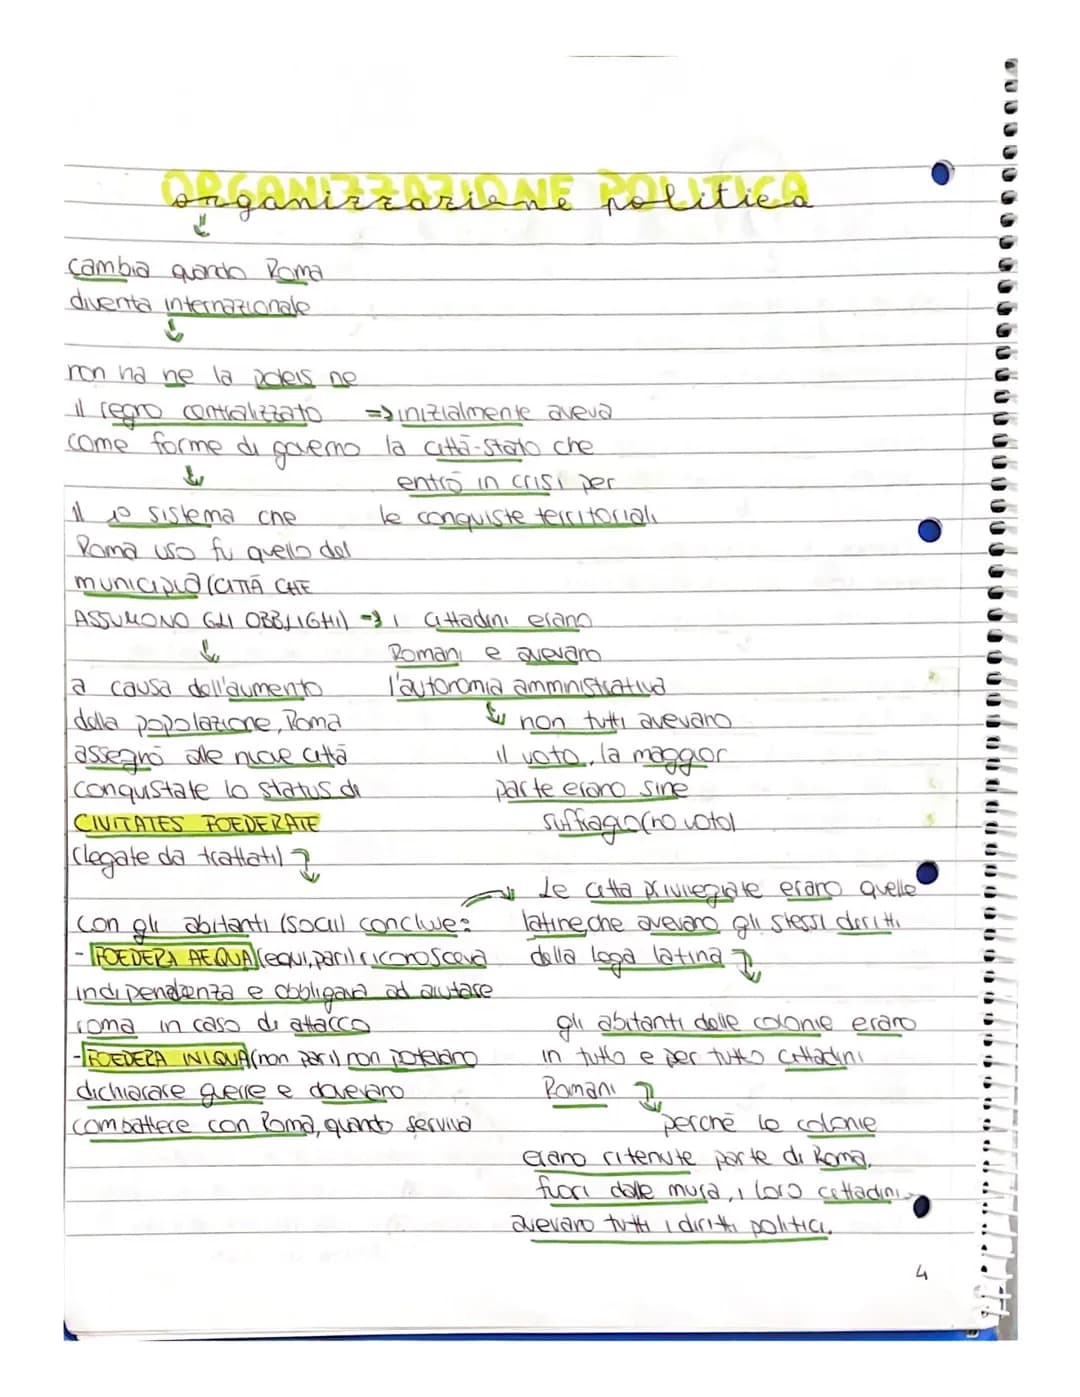 ORGANIZZAZIONE POLITICA
organizzazione politica
cambia quando Roma
diventa internazionale
non ha ne la poleis ne
il regno centralizzato
come forme di governo
=> inizialmente aveva
la città-stato che
entrò in crisi per
le conquiste territoriali
il 1º sistema che
Roma uso fu quello del
municipio (CITTÀ CHE
ASSUMONO GLI OBBLIGHI) => i cittadini erano
Romani e avevano
l'autonomia amministrativa
non tutti avevano
il voto, la maggior
parte erano sine
suffragio (no voto)
a causa dell'aumento
della popolazione, Roma
assegnò alle nuove città
conquistate lo status di
CIVITATES FOEDERATE
(legate da trattati)
con gli abitanti (socii) concluse:
- FOEDERA AEQUA (equi, pari) riconosceva
indipendenza e obbligava ad aiutare
roma in caso di attacco
- FOEDERA INIQUA (non pari) non potevano
dichiarare guerre e dovevano
combattere con Roma, quando serviva
Le città privilegiate erano quelle
latine che avevano gli stessi diritti
della lega latina
gli abitanti delle colonie erano
in tutto e per tutto cittadini
Romani
perchè le colonie
erano ritenute parte di Roma,
fuori dalle mura, i loro cittadini
avevano tutti i diritti politici.
4